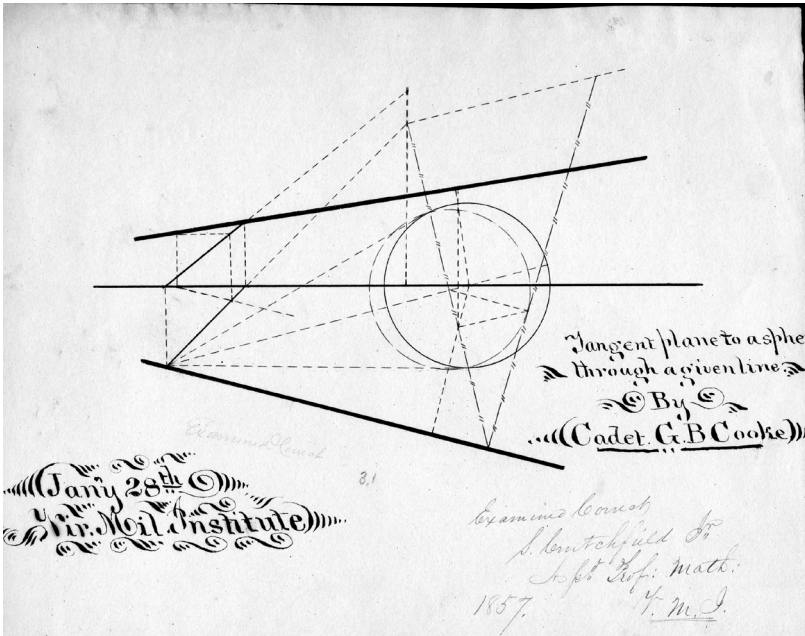 Tangent plane to a sphe
through a given line
By
Cadet. G. B Cooke
Examined Correct
Jan'y 28th
Vir. Mil. Institute
3,1
Examined Correct
S. Crutchfield Jr
Asst Prof: Math:
1857. V. M. I.